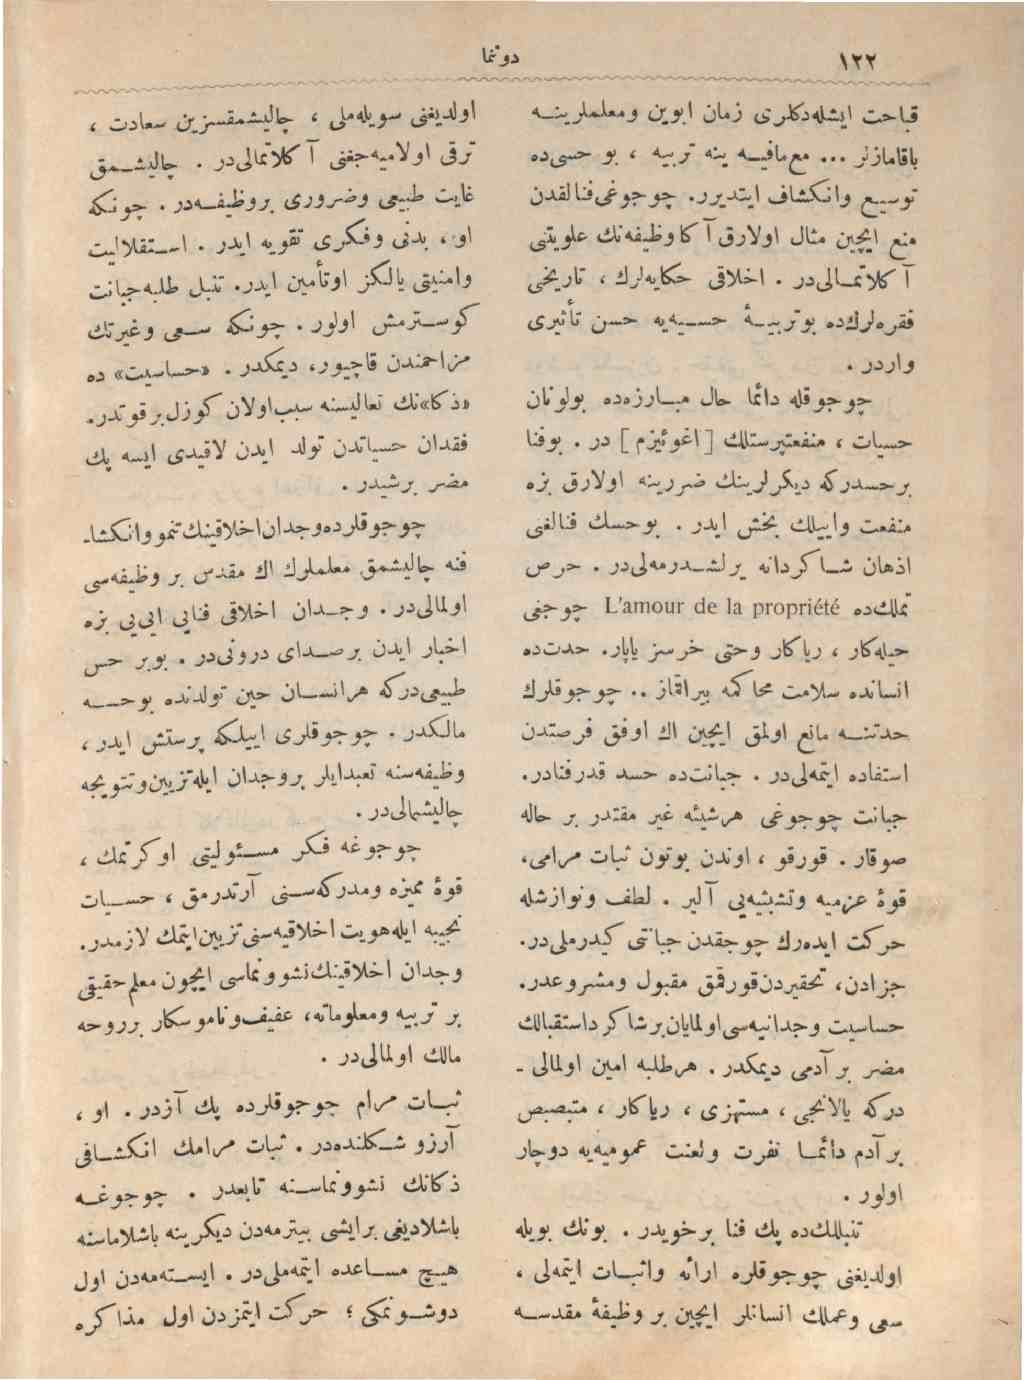 ١٢٢
دوننما
قباحت ایشله‌دكلری زمان ابوین ومعلملرینـه
باقامازلر ... مع‌مافیـه ینه تربیه ، بو حسی‌ده
توسیـع وانكشاف ایتدیرر. چوجوغی‌فنالقدن
منع ایچین مثال اولارق آ كا وظیفه‌نك علویتنی
آ كلاتمـالی‌در . اخلاقی حكایه‌لرك ، تاریخی
فقره‌لرك‌ده بوتربیـهٔ حسـیه‌یه حسن تأثیری
واردر .
چوجوقله دائما حال مبـارزه‌ده بولونان
حسیات ، منفعتپرستلك [ اغوئیزم ] در . بوفنا
برحسدركه دیكرلرینك ضررینه اولارق بزه
منفعت واییلك بخش ایدر . بوحسك فنالغنی
اذهان شـاكردانه یرلشـدرمه‌لی‌در . حرص
تملك‌ده L'amour de la propriété چوجغی
حیله‌كار ، ریاكار وحتی خرسز یاپار. حدت‌ده
انسانده سلامت محاكمه بیراقماز .. چوجوقلرك
حدتنـه مانع اولمق ایچین اك اوفق فرصتدن
استفاده ایتمه‌لی‌در . جبانت‌ده حسد قدرفنادر.
جبانت چوجوغی هرشیئه غیر مقتدر بر حاله
صوقار . قورقو ، اوندن بوتون ثبات مرامی،
قوهٔ عزمیه وتشبثیه‌یی آلیر . لطف ونوازشله
حركت ایده‌رك چوجقدن جبانتی كیدرملی‌در.
جزادن، تحقیردن‌قورقمق مقبول ومشروعدر.
حساسیت وجدانیه‌سی‌اولمایان‌برشاكرداستقبالك
مضر بر آدمی دیمكدر . هرطلبه امین اولمالی -
دركه یالانجی ، مستهزی ، ریاكار ، متبصبص
بر آدم دائمـا نفرت ولعنت عمومیه‌یه دوچار
اولور .
تنبللك‌ده پك فنا برخویدر . بونك بویله
اولدیغنی چوجوقلره ارائه واثبـات ایتمه‌لی ،
سعی وعملك انسانلر ایچین بر وظیفهٔ مقدسـه
اولدیغنی سویله‌ملی ، چالیشمقسزین سعادت ،
ترقی اولامیه‌جغنی آ كلاتمالی‌در . چالیشـمق
غایت طبیعی وضروری بروظیفـه‌در . چونكه
او ، بدنی وفكری تقویه ایدر . اسـتقلالیت
وامنیتی یالكز اوتأمین ایدر. تنبل طلبه‌جبانت
كوسـترمش اولور . چونكه سـعی وغیرتك
مزاحمندن قاچیور، دیمكدر . «حساسیت» ده
«ذكا»نك تعالیسنه سبب‌اولان كوزل‌برقوتدر.
فقدان حسیاتدن تولد ایدن لاقیدی ایسه پك
مضر برشیدر .
چوجوقلرده‌وجدان‌اخلاقینك‌تنمووانكشاـ
فنه چالیشمق معلملرك اك مقدس بر وظیفه‌سی
اولمالی‌در . وجـدان اخلاقی فنایی ایی‌یی بزه
اخبار ایدن برصـدای درونی‌در . بوبر حس
طبیعی‌دركه هرانسـان حین تولدنده بوحسـه
مالكدر . چوجوقلری اییلكه پرستش ایدر ،
وظیفه‌سنه تعبدایلر بروجدان ایله‌تزیین‌وتتویجه
چالیشمالی‌در .
چوجوغه فـكر مسـئولیتی اوكرتمك ،
قوهٔ ممیزه ومدركه‌سـنی آرتدرمق ، حسـیات
نجیبه ایله‌هویت اخلاقیه‌سنی‌تزیین‌ایتمك لازمدر.
وجدان اخلاقینك‌نشوونماسی ایچون معلم‌حقیقی
بر تربیه ومعلوماته، عفیف‌وناموسكار برروحه
مالك اولمالی‌در .
ثبـات مرام چوجوقلرده پك آزدر . او ،
آرزو شـكلنده‌در . ثبات مرامك انكشـافی
ذكانك نشوونماسـنه تابعدر . چوجوغـه
باشلادیغی برایشی بیترمه‌دن دیكرینه باشلاماسنه
هیـچ مسـاعده ایتمه‌ملی‌در . ایسـته‌مه‌دن اول
دوشـونمكی ؛ حركت ایتمزدن اول مذاكره